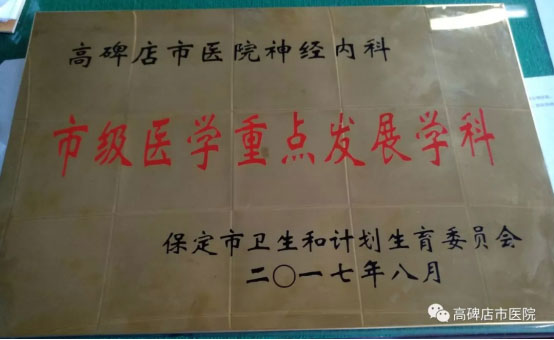 高碑店市医院神经内科
市级医学重点发展学科
保定市卫生和计划生育委员会
二〇一七年八月
高碑店市医院